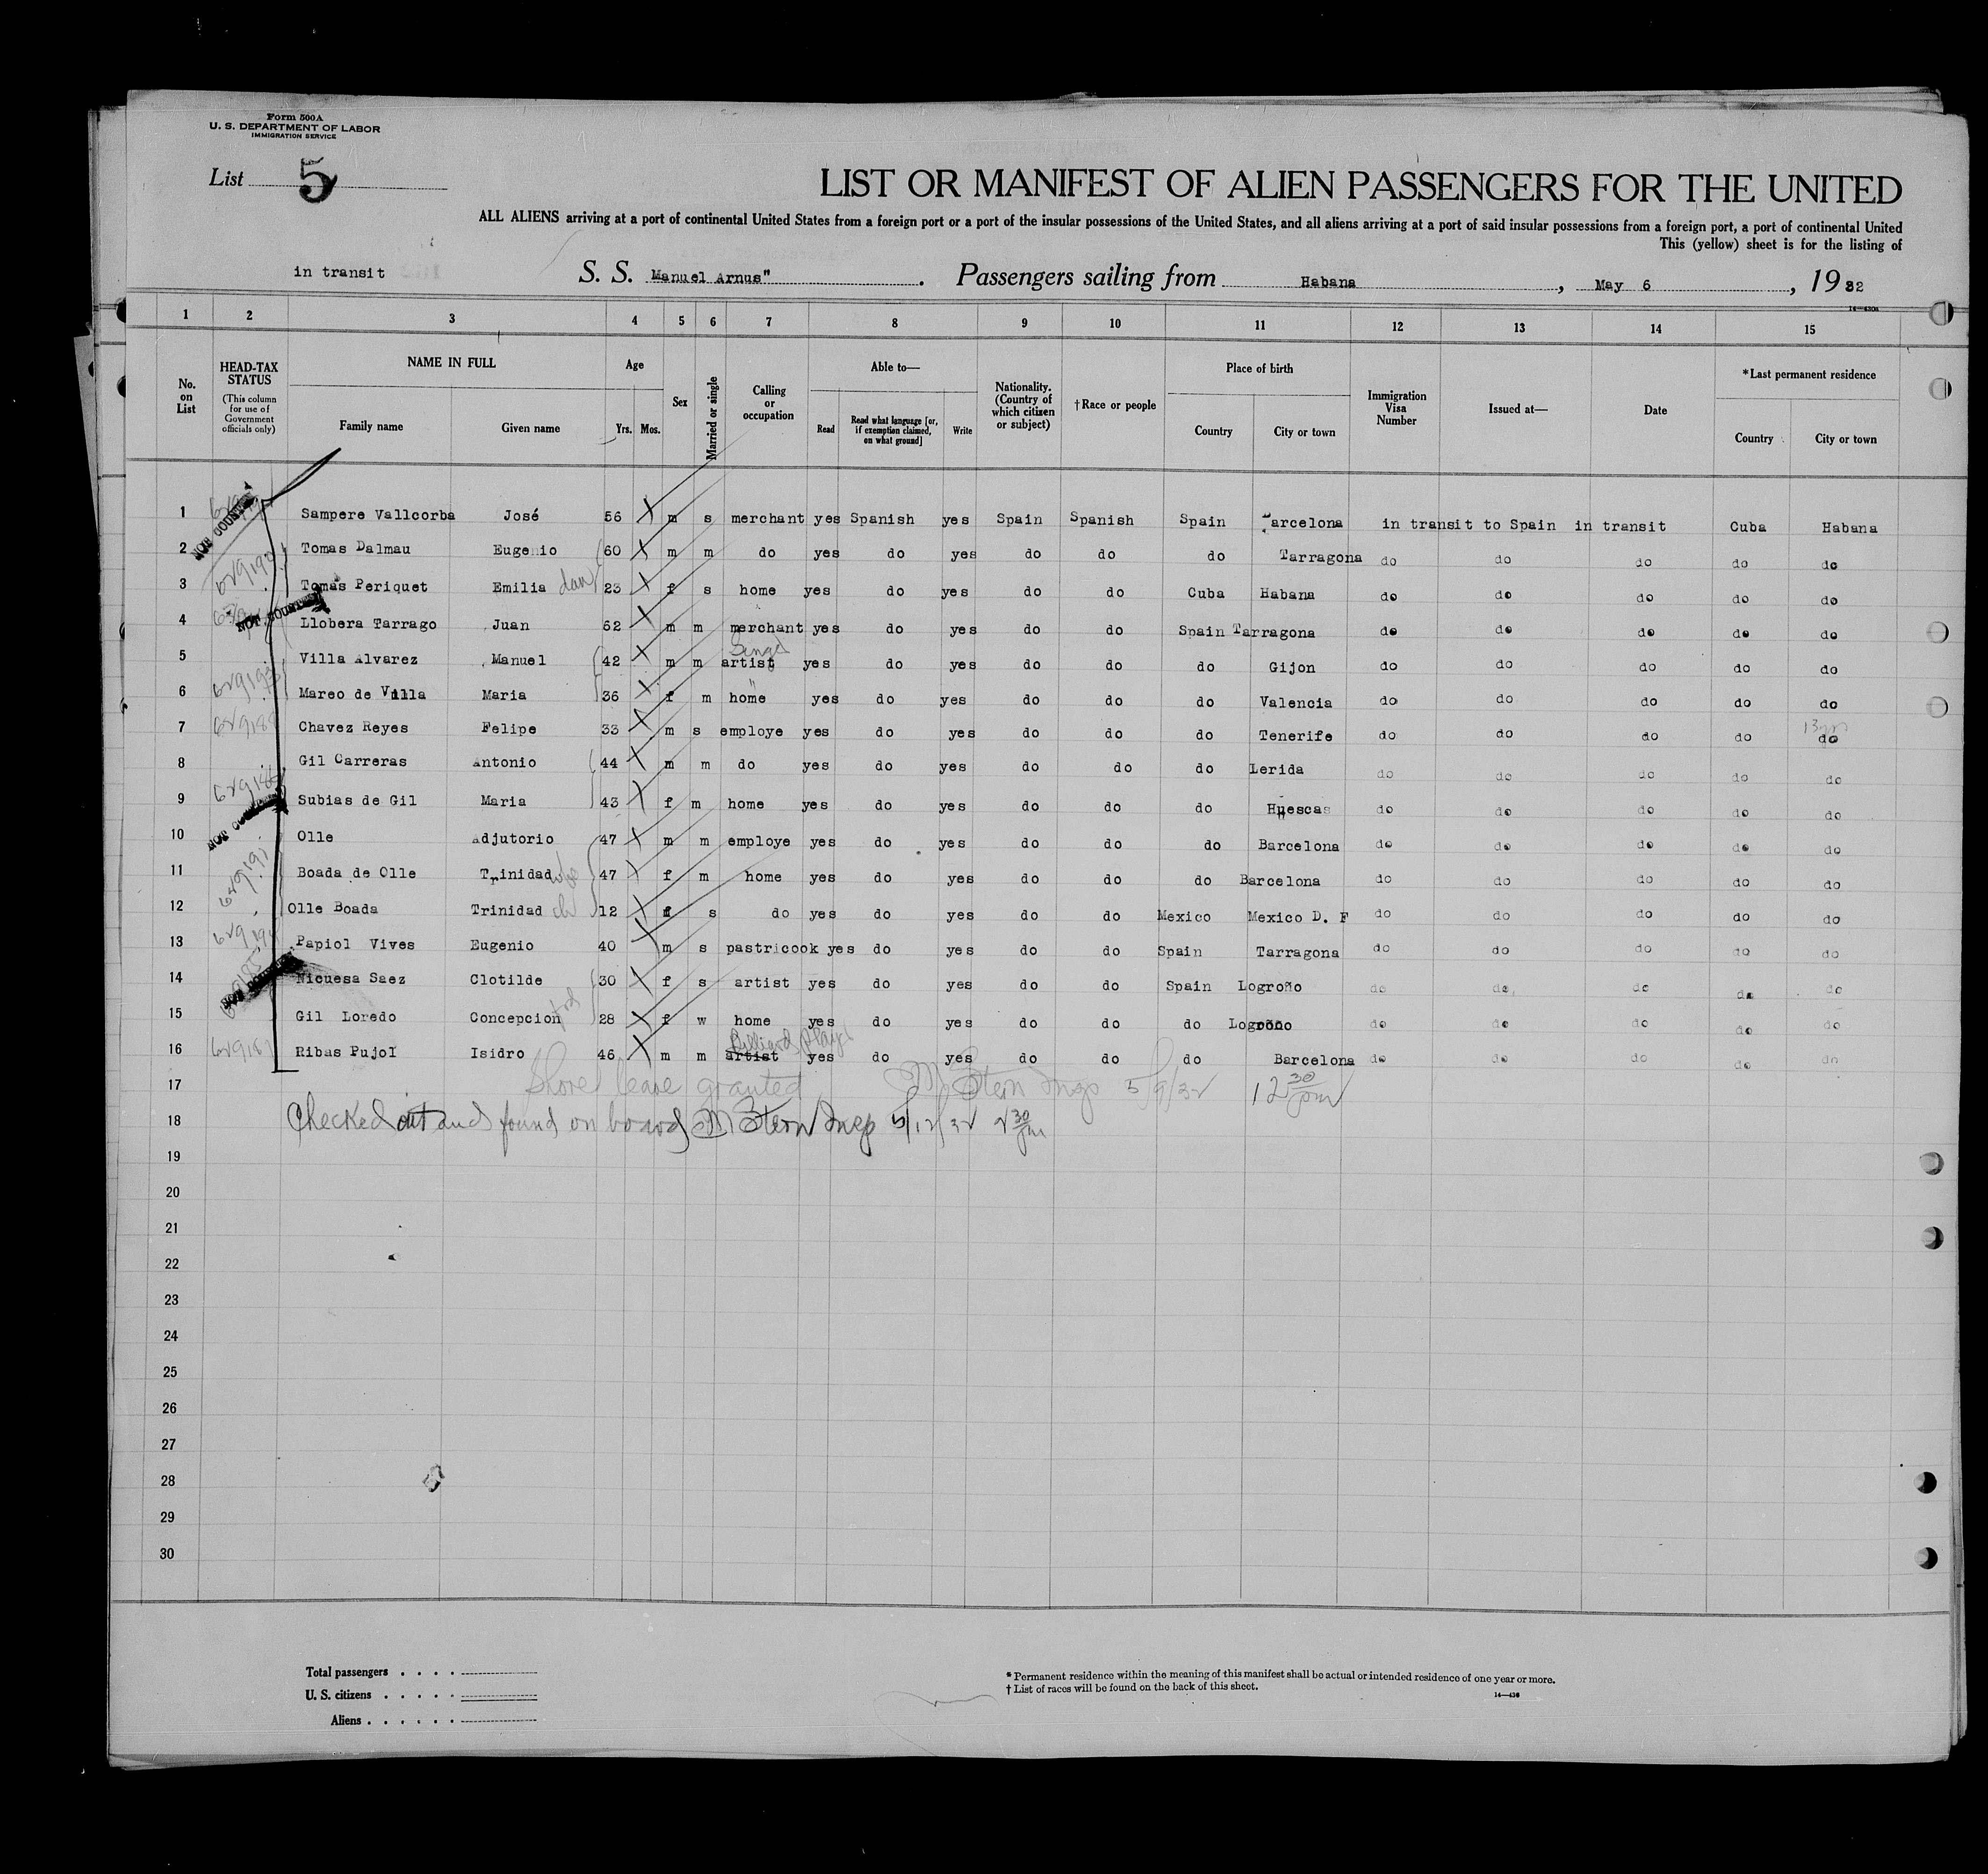 Form 500A
U. S. DEPARTMENT OF LABOR
IMMIGRATION SERVICE
List 5
LIST OR MANIFEST OF ALIEN PASSENGERS FOR THE UNITED
ALL ALIENS arriving at a port of continental United States from a foreign port or a port of the insular possessions of the United States, and all aliens arriving at a port of said insular possessions from a foreign port, a port of continental United
This (yellow) sheet is for the listing of
in transit S. S. Manuel Arnus". Passengers sailing from Habana, May 6, 1932
1 2 3 4 5 6 7 8 9 10 11 12 13 14 15
No. on List HEAD-TAX STATUS (This column for use of Government officials only) NAME IN FULL Family name Given name Age Yrs. Mos. Sex Married or single Calling or occupation Able to— Read Read what language [or, if exemption claimed, on what ground] Write Nationality. (Country of which citizen or subject) †Race or people Place of birth Country City or town Immigration Visa Number Issued at— Date *Last permanent residence Country City or town
1 NOT COUNTED Sampere Vallcorba José 56 m s merchant yes Spanish yes Spain Spanish Spain Barcelona in transit to Spain in transit Cuba Habana
2 Tomas Dalmau Eugenio 60 m m do yes do yes do do do Tarragona do do do do do
3 Tomas Periquet Emilia dau 23 f s home yes do yes do do Cuba Habana do do do do do
4 NOT COUNTED Llobera Tarrago Juan 52 m m merchant yes do yes do do Spain Tarragona do do do do do
5 Villa Alvarez Manuel 42 m m artist yes do yes do do do Gijon do do do do do
6 Mareo de Villa Maria 36 f m home yes do yes do do do Valencia do do do do do
7 Chavez Reyes Felipe 33 m s employe yes do yes do do do Tenerife do do do do do
8 Gil Carreras Antonio 44 m m do yes do yes do do do Lerida do do do do do
9 Subias de Gil Maria 43 f m home yes do yes do do do Huescas do do do do do
10 Olle Adjutorio 47 m m employe yes do yes do do do Barcelona do do do do do
11 Boada de Olle Trinidad 47 f m home yes do yes do do do Barcelona do do do do do
12 Olle Boada Trinidad 12 f s do yes do yes do do Mexico Mexico D. F do do do do do
13 Papiol Vives Eugenio 40 m s pastricook yes do yes do do Spain Tarragona do do do do do
14 Nicuesa Saez Clotilde 30 f s artist yes do yes do do Spain Logroño do do do do do
15 Gil Loredo Concepcion 28 f w home yes do yes do do do Logroño do do do do do
16 Ribas Pujol Isidro 46 m m artist Billiard Player yes do yes do do do Barcelona do do do do do
17 Shore leave granted M Stern Insp 5/9/32 12 30 pm
18 Checked out and found on board M Stern Insp 5/12/32 2 30 pm
19
20
21
22
23
24
25
26
27
28
29
30
Total passengers . . . .
U. S. citizens . . . . .
Aliens . . . . . .
* Permanent residence within the meaning of this manifest shall be actual or intended residence of one year or more.
† List of races will be found on the back of this sheet.
14—436